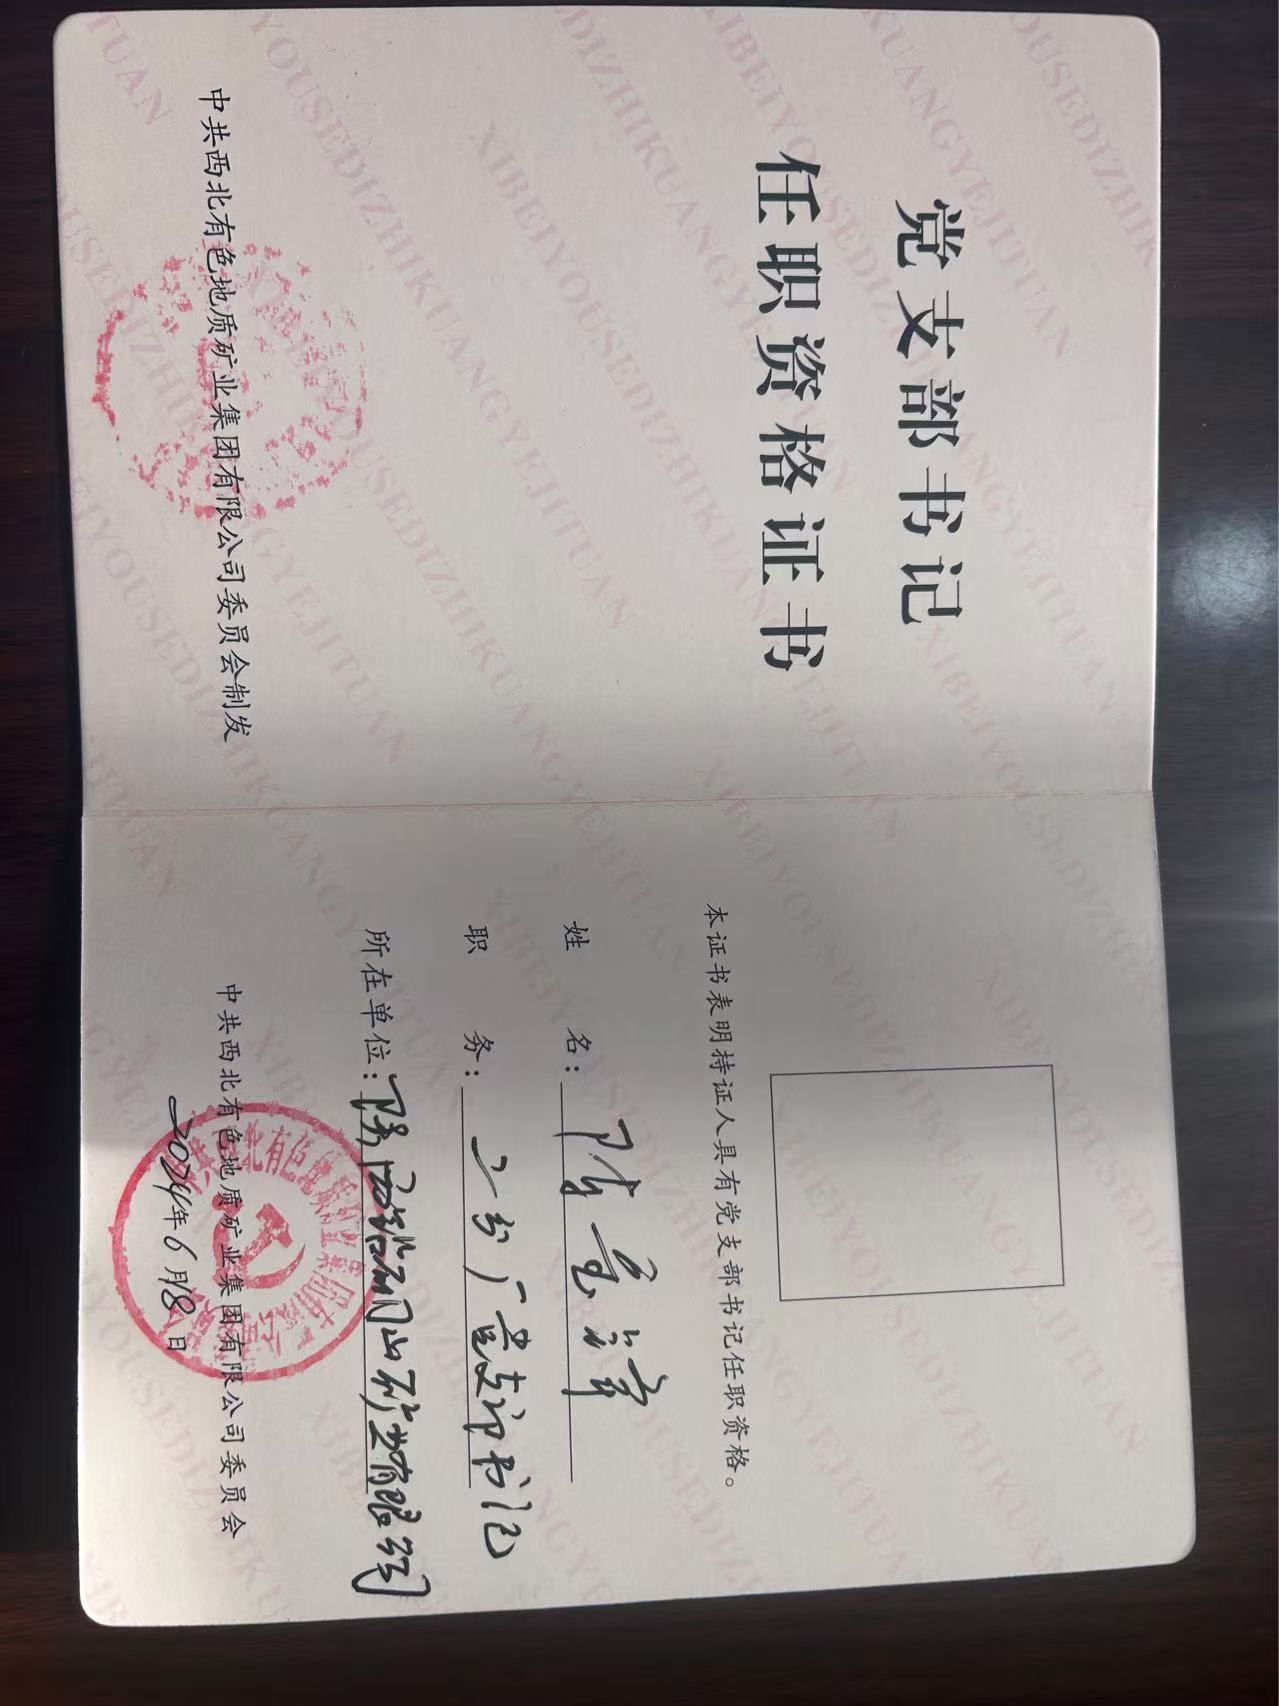 党支部书记
任职资格证书
中共西北有色地质矿业集团有限公司委员会制发
本证书表明持证人具有党支部书记任职资格。
姓 名：
职 务：二分厂党支部书记
所在单位：陕西 山矿业有限公司
中共西北有色地质矿业集团有限公司委员会
2024年6月18日
XIBEIYOUSEDIZHIKUANGYEJITUAN